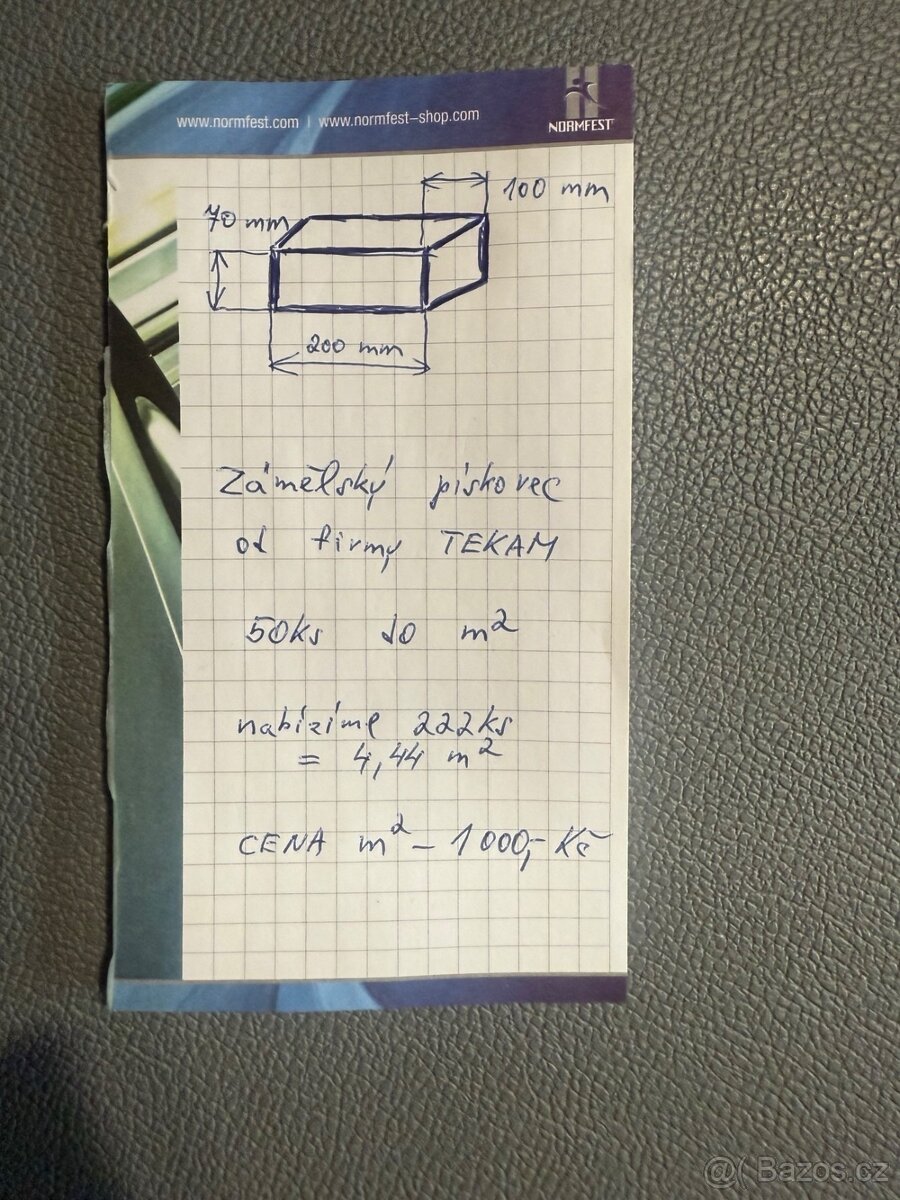 www.normfest.com | www.normfest-shop.com
NORMFEST
100 mm
70 mm
200 mm
Zámělský pískovec
od firmy TEKAM
50ks do m²
nabízíme 222ks
= 4,44 m²
CENA m² - 1000,- Kč
@( Bazos.cz